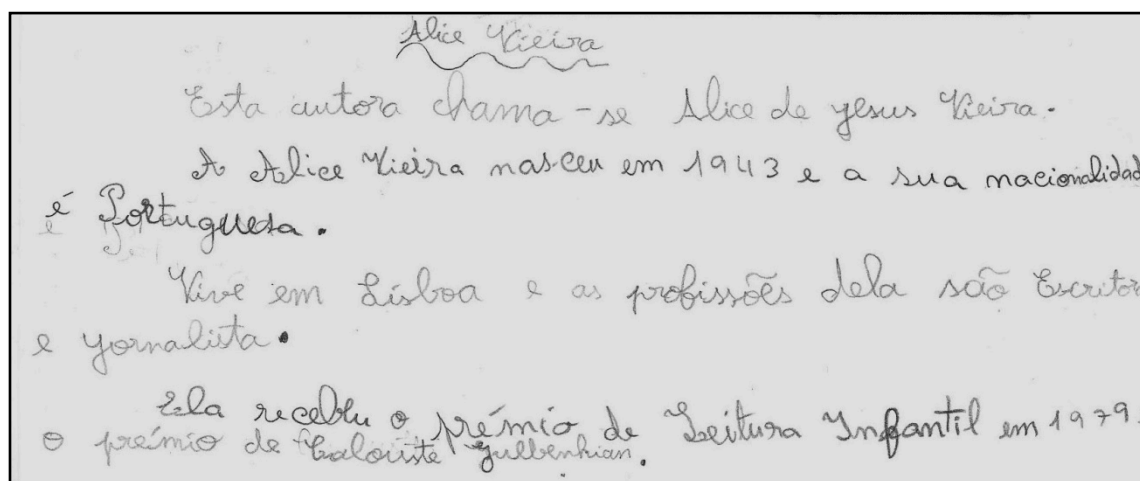 Alice Vieira
Esta autora chama-se Alice de Jesus Vieira.
A Alice Vieira nasceu em 1943 e a sua nacionalidad
é Portuguesa.
Vive em Lisboa e as profissões dela são Escritor
e Jornalista.
Ela recebeu o prémio de Leitura Infantil em 1979.
o prémio de Calouste Gulbenkian.